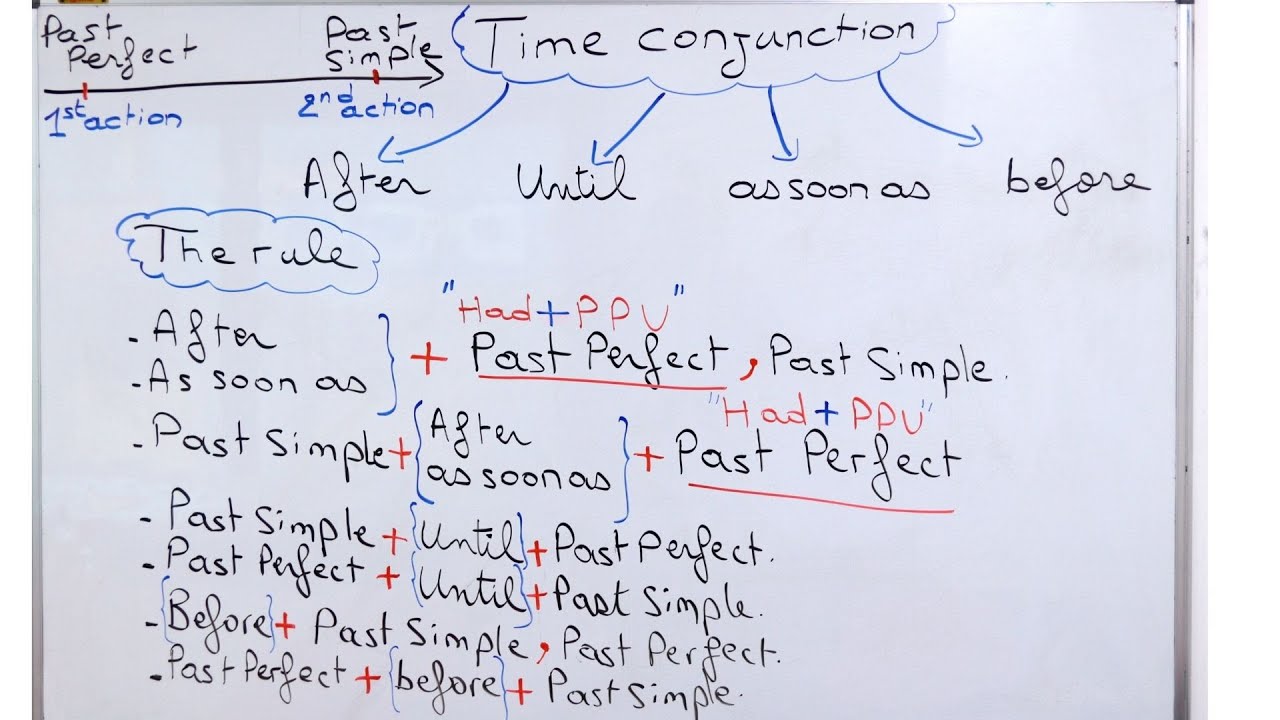 Past Perfect
Past Simple
1st action
2nd action
Time conjunction
After Until as soon as before
The rule
"Had + PPV"
- After
- As soon as
+ Past Perfect, Past Simple.
"Had + PPV"
- Past Simple + {After
as soon as} + Past Perfect
- Past Simple + {Until} + Past Perfect.
- Past Perfect + {Until} + Past Simple.
- {Before} + Past Simple, Past Perfect.
- Past Perfect + {before} + Past Simple.